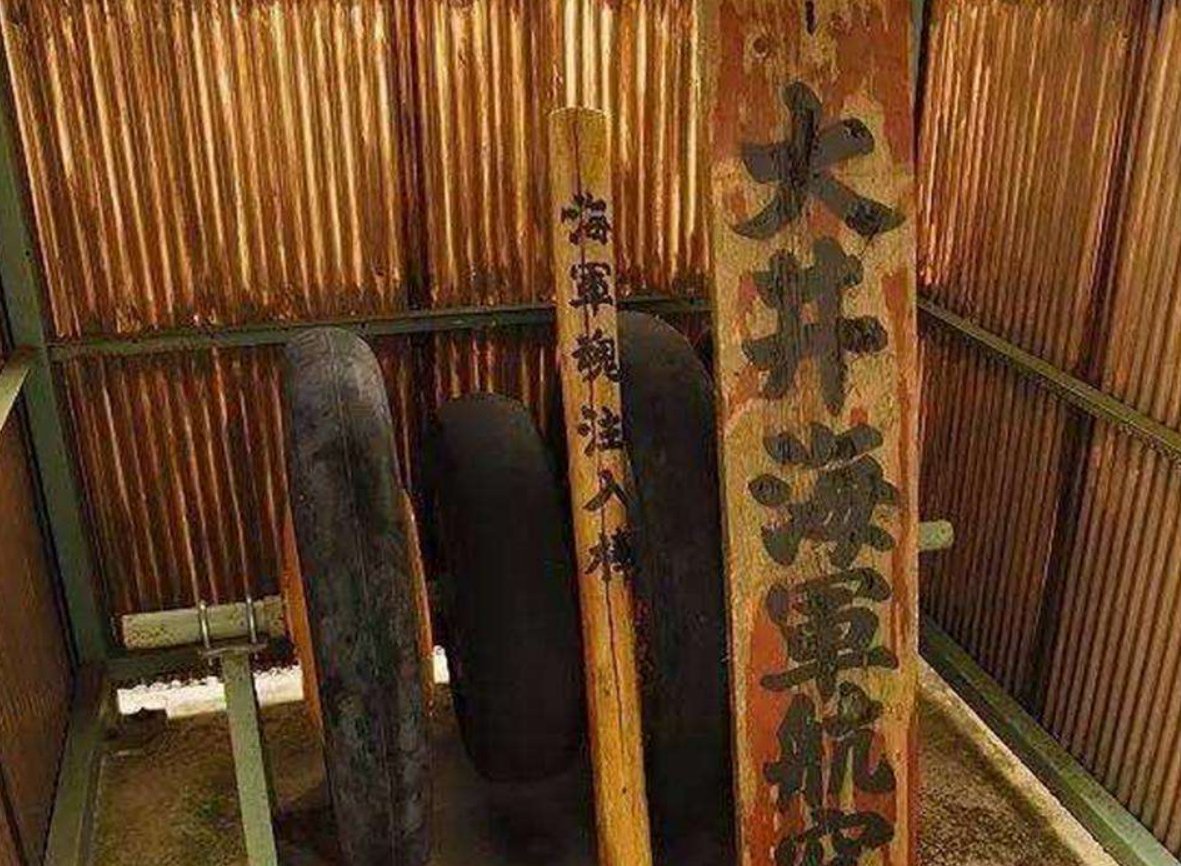 大井海軍航空
海軍魂注入棒